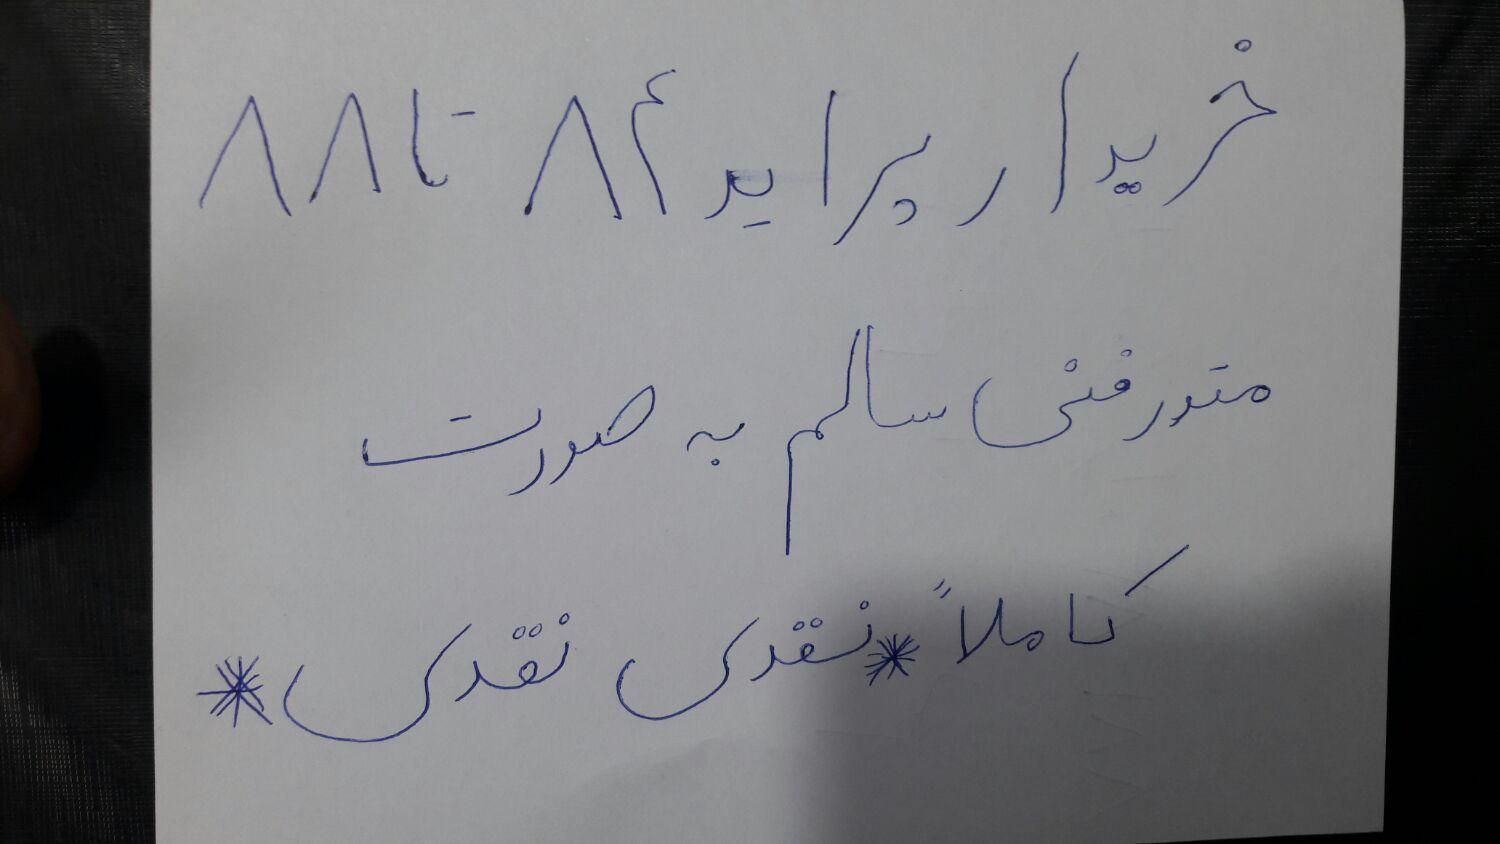 خریدار پراید ۸۴ تا ۸۸
متور فنی سالم به صورت
کاملاً *نقدی نقدی*